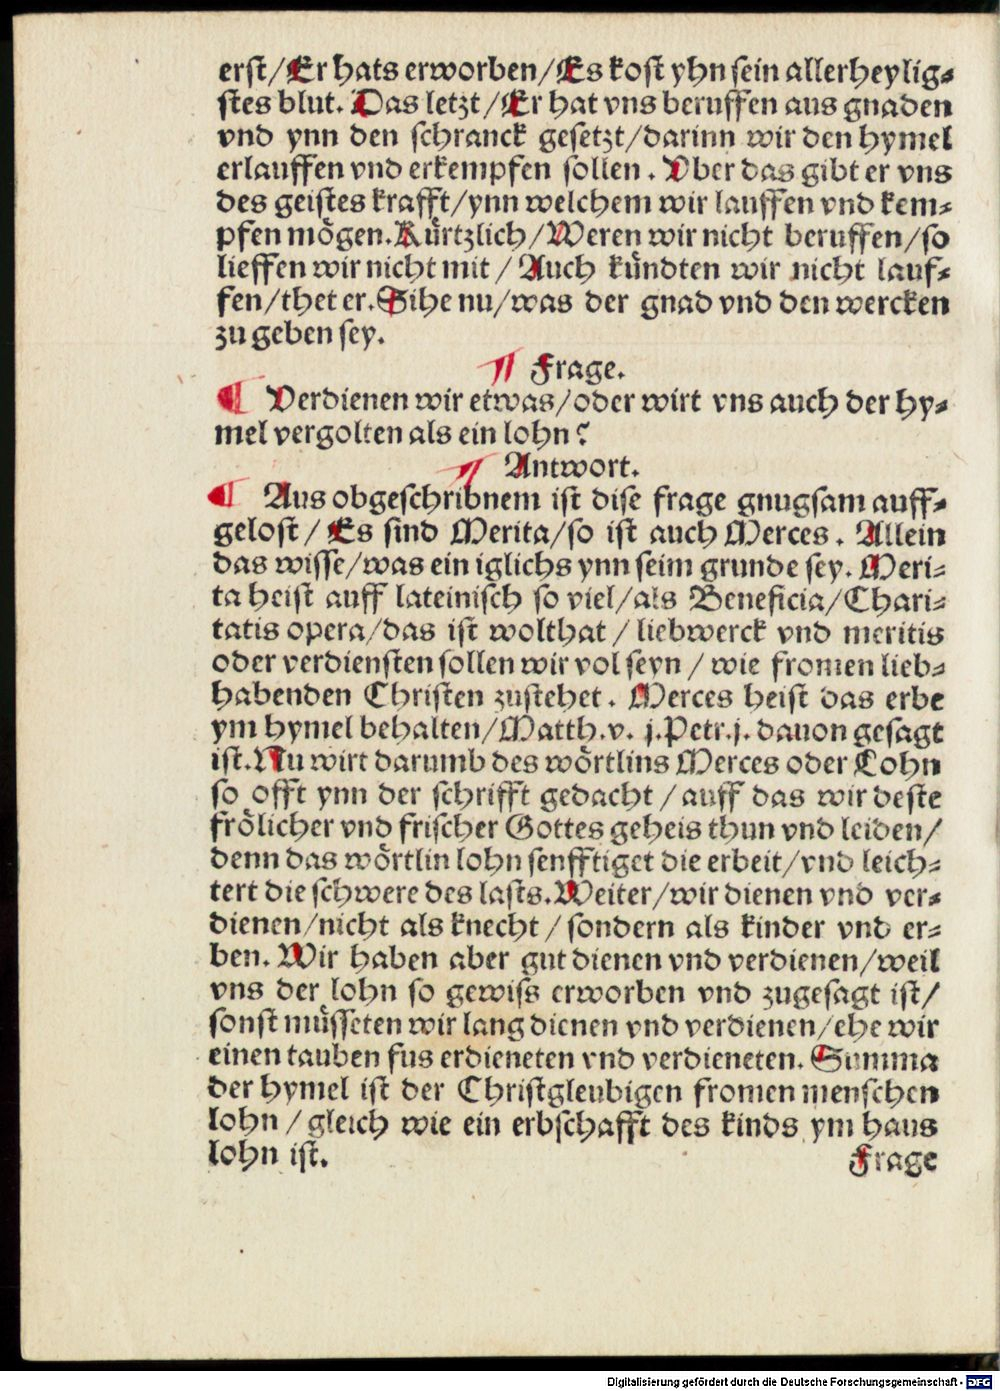 erst/Er hats erworben/Es kost yhn sein allerheylig⸗
stes blut. Das letzt/Er hat vns beruffen aus gnaden
vnd ynn den schranck gesetzt/darinn wir den hymel
erlauffen vnd erkempfen sollen. Vber das gibt er vns
des geistes krafft/ynn welchem wir lauffen vnd kem⸗
pfen mögen. Kürtzlich/Weren wir nicht beruffen/so
lieffen wir nicht mit/Auch kündten wir nicht lauf⸗
fen/thet er. Sihe nu/was der gnad vnd den wercken
zu geben sey.
¶ Frage.
¶ Verdienen wir etwas/oder wirt vns auch der hy⸗
mel vergolten als ein lohn?
¶ Antwort.
¶ Aus obgeschribnem ist dise frage gnugsam auff⸗
gelost/Es sind Merita/so ist auch Merces. Allein
das wisse/was ein iglichs ynn seim grunde sey. Meri⸗
ta heist auff lateinisch so viel/als Beneficia/Chari⸗
tatis opera/das ist wolthat/liebwerck vnd meritis
oder verdiensten sollen wir vol seyn/wie fromen lieb⸗
habenden Christen zustehet. Merces heist das erbe
ym hymel behalten/Matth.v. j.Petr.j. dauon gesagt
ist. Nu wirt darumb des wörtlins Merces oder Lohn
so offt ynn der schrifft gedacht/auff das wir deste
frölicher vnd frischer Gottes geheis thun vnd leiden/
denn das wörtlin lohn senfftiget die erbeit/vnd leich⸗
tert die schwere des lasts. Weiter/wir dienen vnd ver⸗
dienen/nicht als knecht/sondern als kinder vnd er⸗
ben. Wir haben aber gut dienen vnd verdienen/weil
vns der lohn so gewiss erworben vnd zugesagt ist/
sonst müsseten wir lang dienen vnd verdienen/ehe wir
einen tauben fus erdieneten vnd verdieneten. Summa
der hymel ist der Christgleubigen fromen menschen
lohn/gleich wie ein erbschafft des kinds ym haus
lohn ist.
Frage
Digitalisierung gefördert durch die Deutsche Forschungsgemeinschaft - DFG